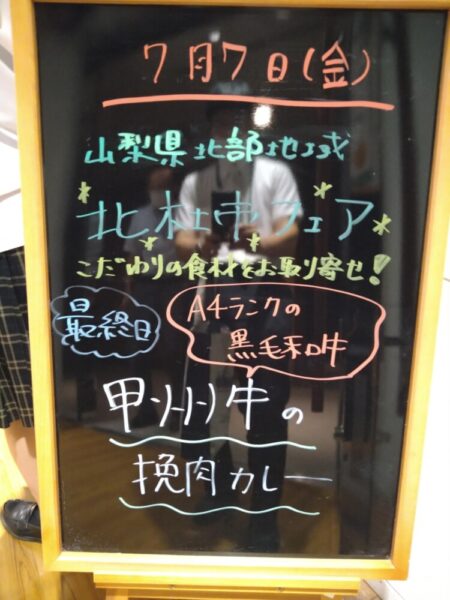 7月7日(金)
山梨県北部地域
北杜市フェア
こだわりの食材をお取り寄せ!
最終日
A4ランクの
黒毛和牛
甲州牛の
挽肉カレー